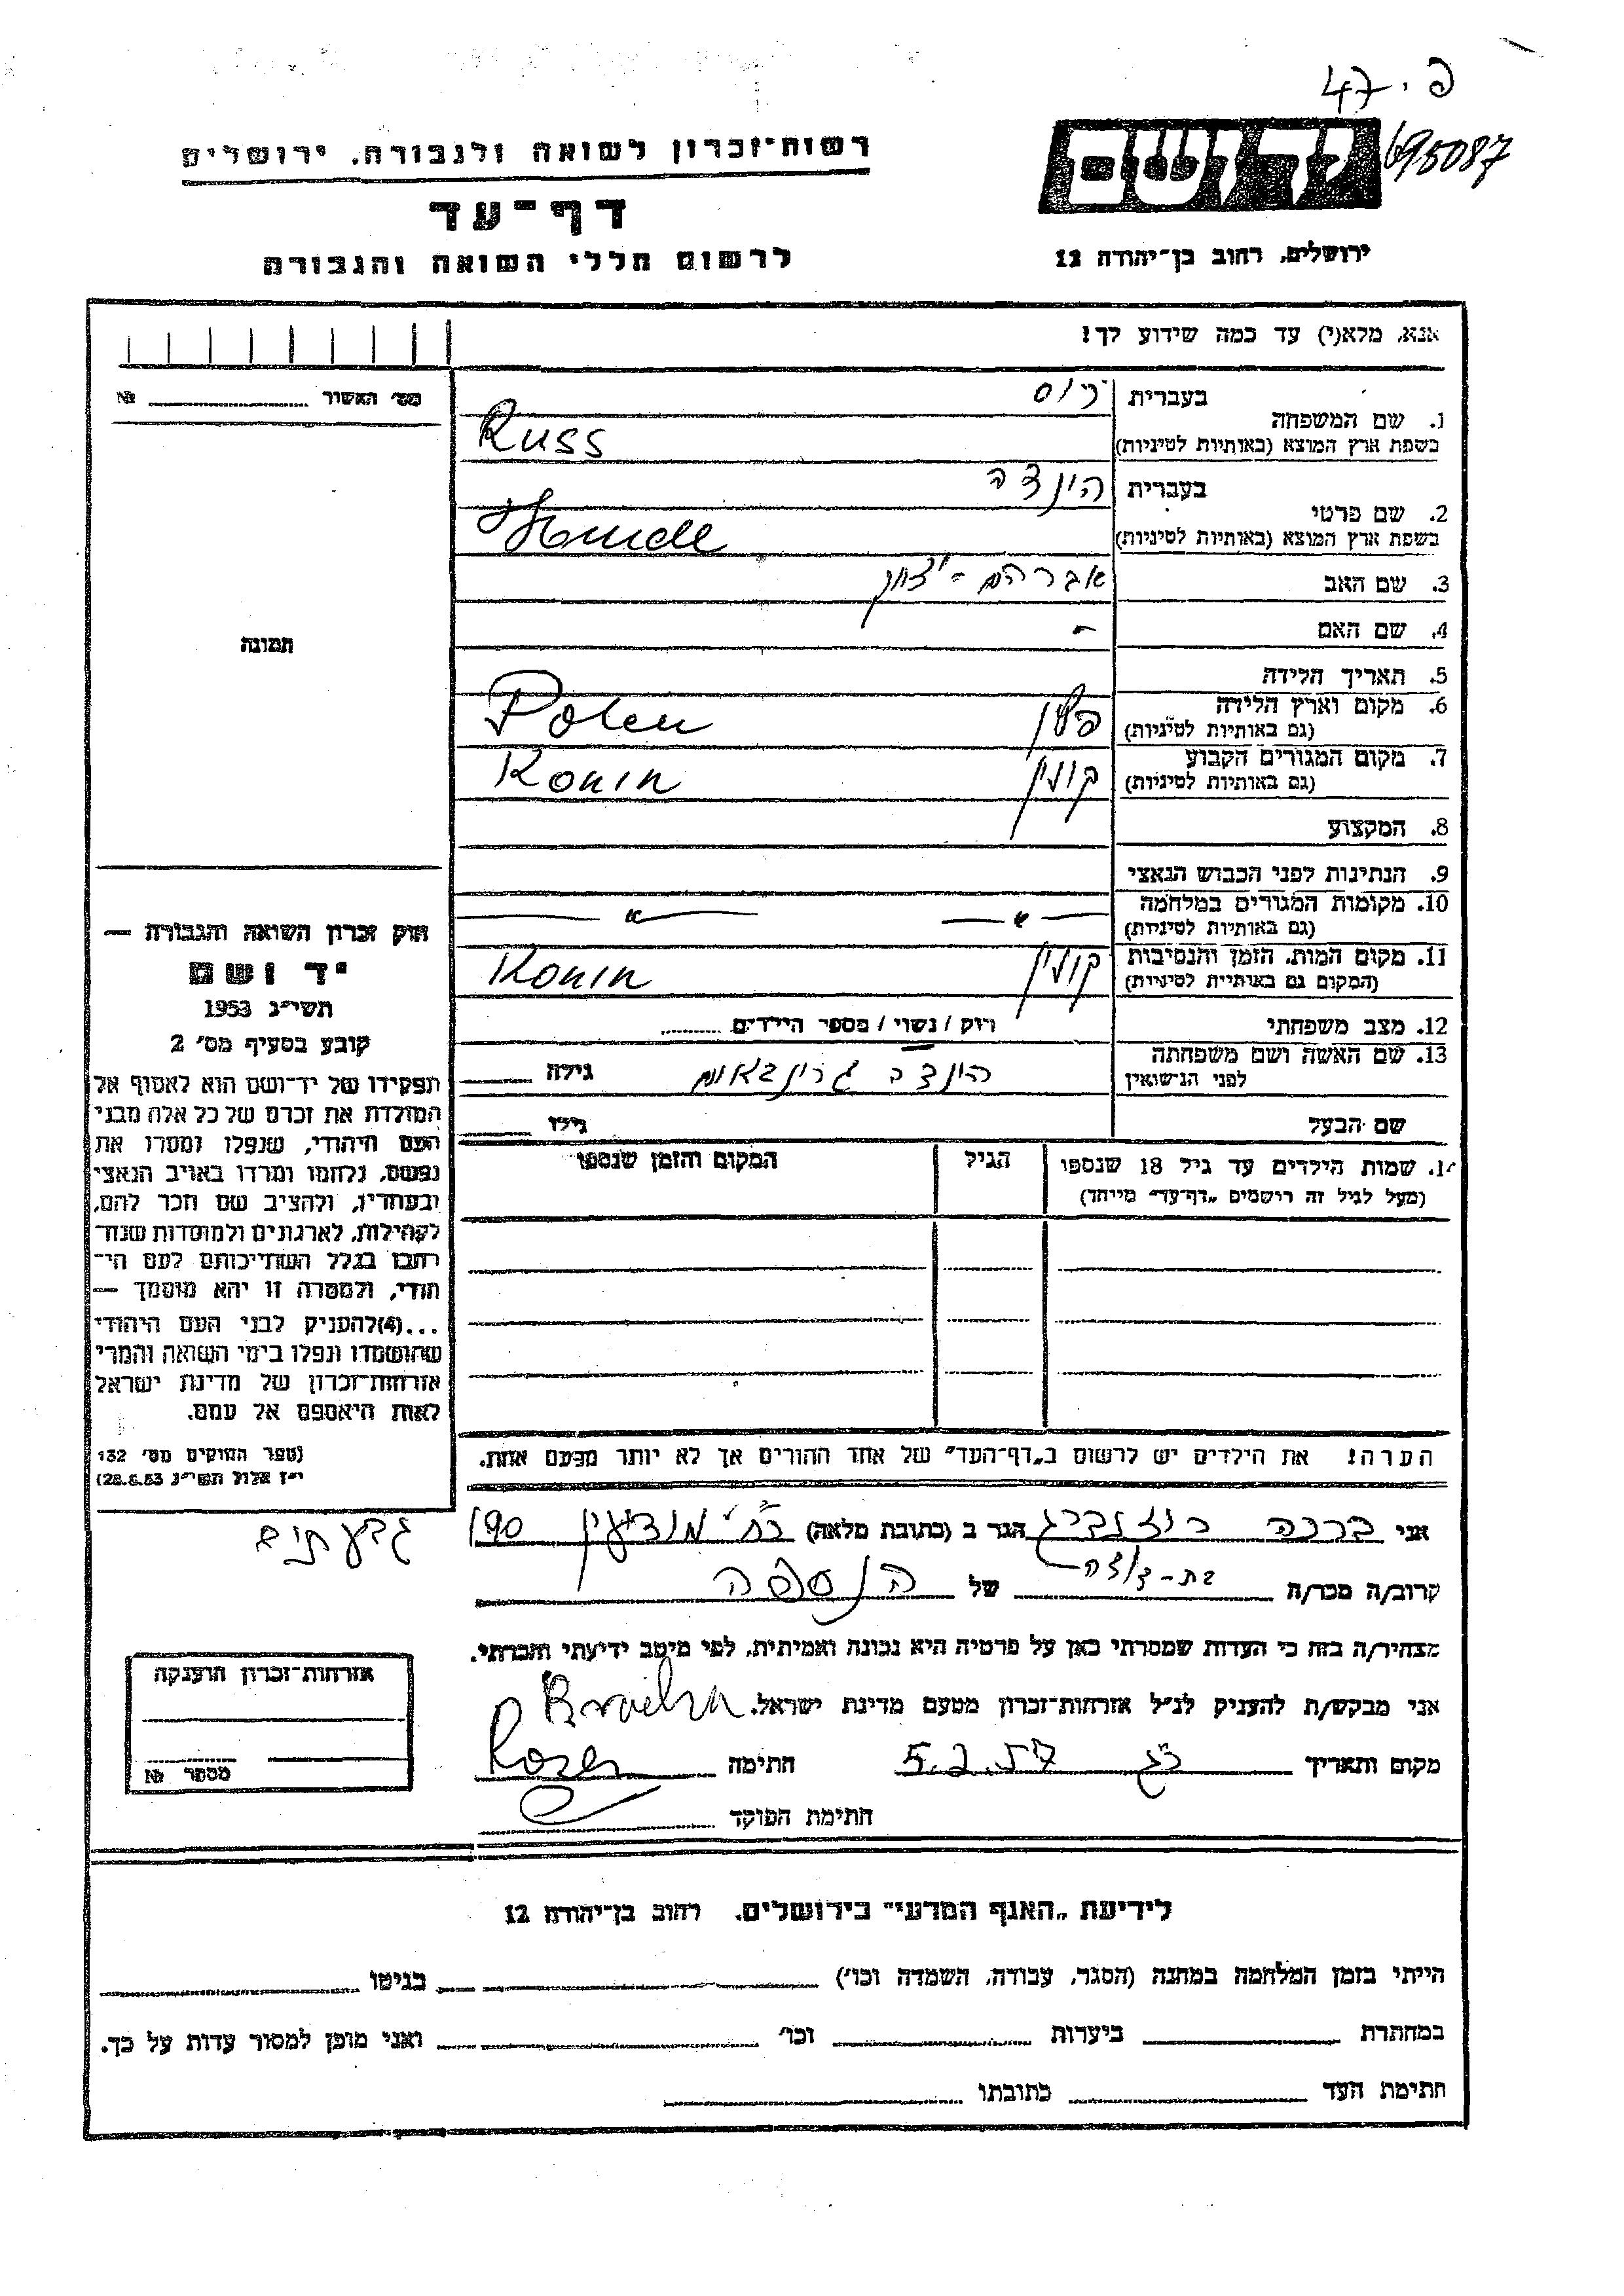 פ. 47
695087
יד ושם
ירושלים, רחוב בן־יהודה 12
רשות־זכרון לשואה ולגבורה, ירושלים
דף־עד
לרשום חללי השואה והגבורה
אנא, מלא(י) עד כמה שידוע לך!
מס׳ האשור № 
1. שם המשפחה בעברית רוס
בשפת ארץ המוצא (באותיות לטיניות) Russ
2. שם פרטי בעברית הינדה
בשפת ארץ המוצא (באותיות לטיניות)
3. שם האב אברהם - יצחק
4. שם האם -
5. תאריך הלידה
6. מקום וארץ הלידה (גם באותיות לטיניות) פולין Polen
7. מקום המגורים הקבוע (גם באותיות לטיניות) קונין Konin
8. המקצוע
9. הנתינות לפני הכבוש הנאצי
10. מקומות המגורים במלחמה (גם באותיות לטיניות) — " — — " —
11. מקום המות, הזמן והנסיבות (המקום גם באותיות לטיניות) קונין Konin
12. מצב משפחתי רווק / נשוי / מספר הילדים
13. שם האשה ושם משפחתה לפני הנישואין הינדה גרינבאום גילה
שם הבעל גילו
תמונה
חוק זכרון השואה והגבורה —
יד ושם
תשי״ג 1953
קובע בסעיף מס׳ 2
תפקידו של יד־ושם הוא לאסוף אל
המולדת את זכרם של כל אלה מבני
העם היהודי, שנפלו ומסרו את
נפשם, נלחמו ומרדו באויב הנאצי
ובעוזריו, ולהציב שם וזכר להם,
לקהילות, לארגונים ולמוסדות שנח־
רבו בגלל השתייכותם לעם הי־
הודי, ולמטרה זו יהא מוסמך —
...(4)להעניק לבני העם היהודי
שהושמדו ונפלו בימי השואה והמרי
אזרחות־זכרון של מדינת ישראל
לאות היאספם אל עמם.
(ספר החוקים מס׳ 132
י״ז אלול תשי״ג 28.8.53)
14. שמות הילדים עד גיל 18 שנספו הגיל המקום והזמן שנספו
(מעל לגיל זה רושמים „דף־עד״ מיוחד)
הערה! את הילדים יש לרשום ב„דף־העד״ של אחד ההורים אך לא יותר מפעם אחת.
אני ברכה רוזנברג הגר ב (כתובת מלאה) רח׳ מודיעין 190 גבעתיים
קרוב/ה מכר/ה בת-דודה של הנספה
מצהיר/ה בזה כי העדות שמסרתי כאן על פרטיה היא נכונה ואמיתית, לפי מיטב ידיעתי והכרתי.
אני מבקש/ת להעניק לנ״ל אזרחות־זכרון מטעם מדינת ישראל.
מקום ותאריך רג 5.2.57 חתימה
חתימת הפוקד
אזרחות־זכרון הוענקה
מספר №
לידיעת „האגף המדעי״ בירושלים, רחוב בן־יהודה 12
הייתי בזמן המלחמה במחנה (הסגר, עבודה, השמדה וכו׳) בגיטו
במחתרת ביערות וכו׳ ואני מוכן למסור עדות על כך.
חתימת העד כתובתו